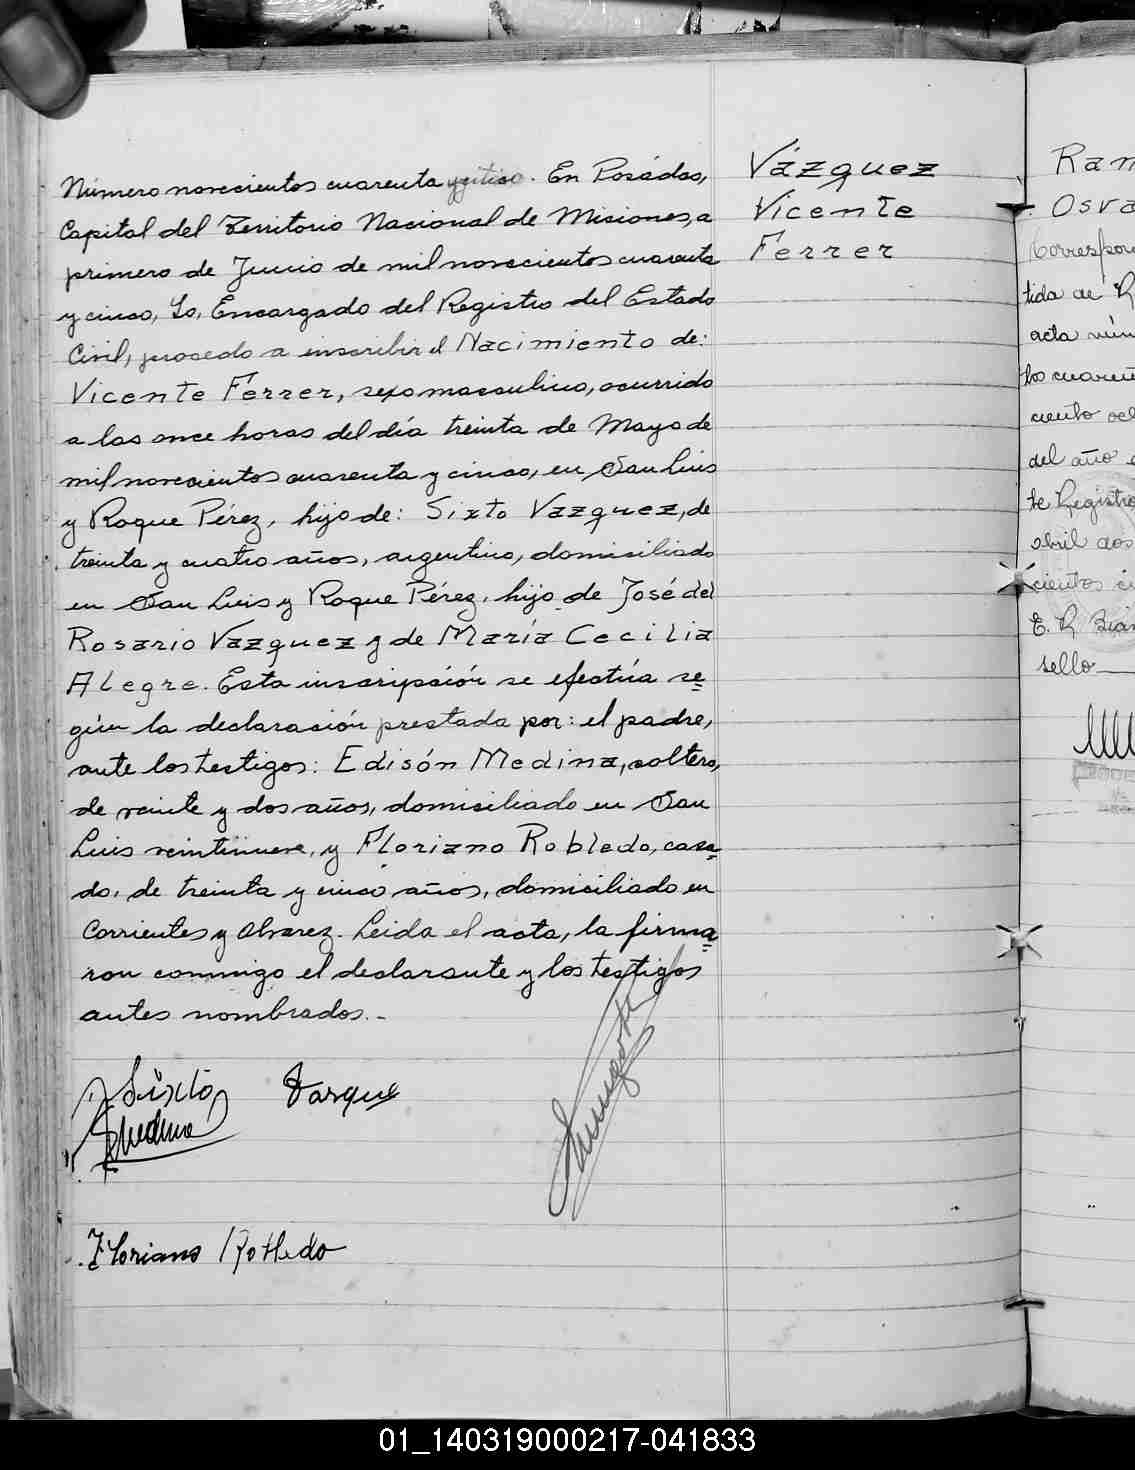 Número novecientos cuarenta y
En Posadas,
Capital del Territorio Nacional de Misiones, a
primero de Junio de mil novecientos cuarenta
y cinco, Yo, Encargado del Registro del Estado
Civil, procedo a inscribir el Nacimiento de:
Vicente Ferrer, sexo masculino, ocurrido
a las once horas del día treinta de Mayo de
mil novecientos cuarenta y cinco, en San Luis
y Roque Pérez, hijo de: Sixto Vazquez, de
treinta y cuatro años, argentino, domiciliado
en San Luis y Roque Pérez, hijo de José del
Rosario Vazquez y de María Cecilia
Alegre. Esta inscripción se efectúa se=
gún la declaración prestada por: el padre,
ante los testigos: Edisón Medina, soltero,
de veinte y dos años, domiciliado en San
Luis veintinueve, y Floriano Robledo, casa=
do, de treinta y cinco años, domiciliado en
Corrientes y Alvarez. Leida el acta, la firma=
ron conmigo el declarante y los testigos
antes nombrados.-
Sixto Vasque
Medina
Floriano Robledo
Vázquez
Vicente
Ferrer
Ram
Osva
Correspon
tida de
acta núm
tos cuaren
ciento
del año
te Registro
abril dos
cientos
sello
01_140319000217-041833